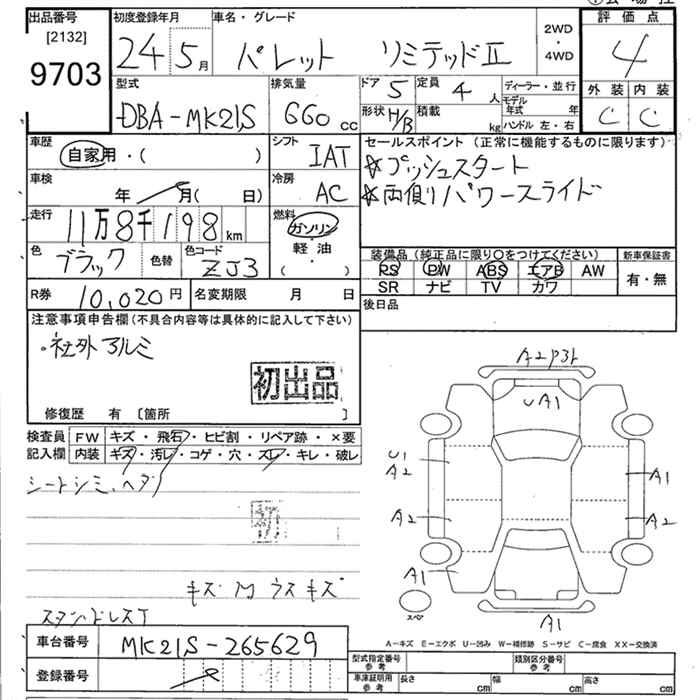 出品番号
[2132]
9703
初度登録年月
24年5月
車名・グレード
パレット リミテッドⅡ
2WD
・
4WD
評価点
4
外装 内装
C C
型式
DBA-MK21S
排気量
660 cc
ドア 5
定員 4 人
形状 H/B
積載 kg
ディーラー・並行
モデル年式 年
ハンドル 左・右
車歴
自家用・( )
シフト
IAT
セールスポイント(正常に機能するものに限ります)
☆プッシュスタート
☆両側パワースライド
車検
年 月( 日)
冷房
AC
走行
11万8千198 km
燃料
ガソリン
軽・油
( )
色
ブラック
色替
色コード
ZJ3
装備品(純正品に限り○をつけてください)
新車保証書
PS PW ABS エアB AW
SR ナビ TV カワ
有・無
R券 10,020円
名変期限 月 日
後日品
注意事項申告欄(不具合内容等は具体的に記入して下さい)
・社外アルミ
初出品
修復歴 有 [箇所 ]
検査員記入欄
FW キズ・飛石・ヒビ割・リペア跡・×要
内装 キズ・汚レ・コゲ・穴・スレ・キレ・破レ
シートシミ、ヘタリ
キズ 内 ウスキズ
A2
UA1
U1
A2
A1
A2
A2
A1
スペア
A1
A-キズ E-エクボ U-凹み W-補修跡 S-サビ C-腐食 XX-交換済
車台番号
MK21S-265629
登録番号
型式指定番号 参考
類別区分番号 参考
車庫証明用 参考
長さ cm 幅 cm 高さ cm